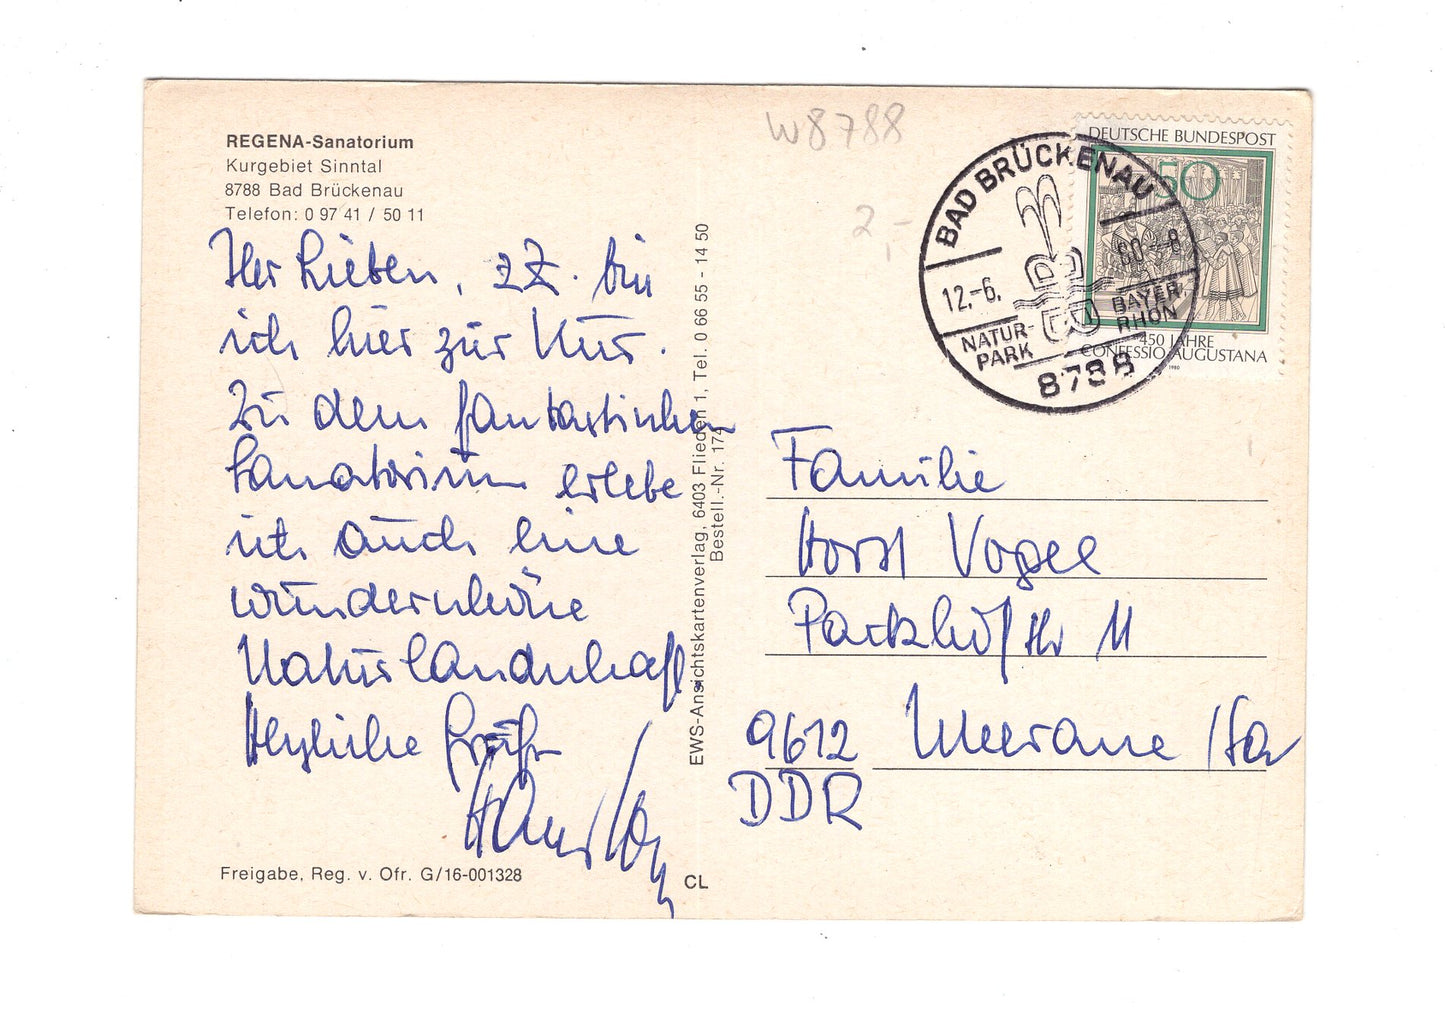 REGENA-Sanatorium
Kurgebiet Sinntal
8788 Bad Brückenau
Telefon: 0 97 41 / 50 11
Ihr Lieben, z.Z. bin
ich hier zur Kur.
Zu dem fantastischen
Sanatorium erlebe
ich auch eine
wunderschöne
Naturlandschaft.
Herzliche Grüße
Freigabe, Reg. v. Ofr. G/16-001328
CL
EWS-Ansichtskartenverlag, 6403 Flieden 1, Tel. 0 66 55 - 14 50
Bestell.-Nr. 174
W8788
2,-
DEUTSCHE BUNDESPOST
50
450 JAHRE
CONFESSIO AUGUSTANA
1980
BAD BRÜCKENAU
12.-6. 80--8
NATUR-
PARK
BAYER.
RHÖN
8788
Familie
Horst Vogel
Parkhofstr 11
9612 Meerane /Sa
DDR